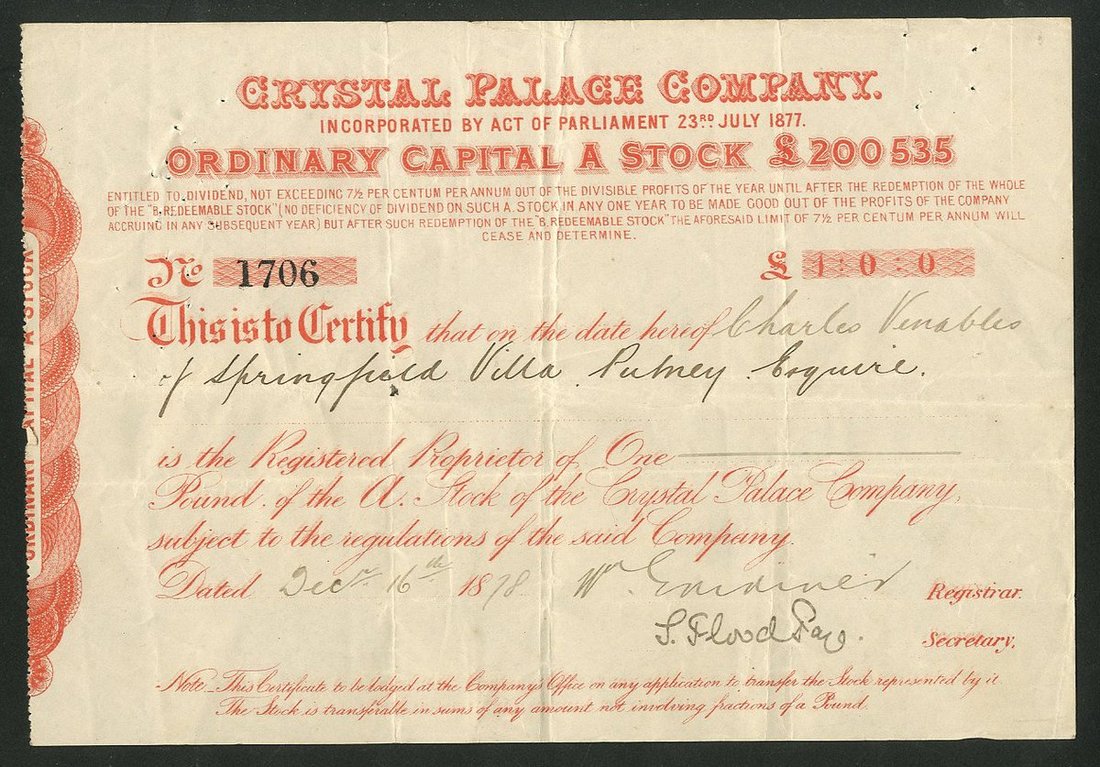 CRYSTAL PALACE COMPANY.
INCORPORATED BY ACT OF PARLIAMENT 23RD JULY 1877.
ORDINARY CAPITAL A STOCK £200535
ENTITLED TO DIVIDEND, NOT EXCEEDING 7½ PER CENTUM PER ANNUM OUT OF THE DIVISIBLE PROFITS OF THE YEAR UNTIL AFTER THE REDEMPTION OF THE WHOLE
OF THE "B. REDEEMABLE STOCK" (NO DEFICIENCY OF DIVIDEND ON SUCH A. STOCK IN ANY ONE YEAR TO BE MADE GOOD OUT OF THE PROFITS OF THE COMPANY
ACCRUING IN ANY SUBSEQUENT YEAR) BUT AFTER SUCH REDEMPTION OF THE "B. REDEEMABLE STOCK" THE AFORESAID LIMIT OF 7½ PER CENTUM PER ANNUM WILL
CEASE AND DETERMINE.
No 1706 £ 1:0:0
This is to Certify that on the date hereof Charles Venables
of Springfield Villa Putney Esquire.
is the Registered Proprietor of One
Pound of the A. Stock of the Crystal Palace Company,
subject to the regulations of the said Company.
Dated Decr 16th 1878 Wm Gardiner Registrar.
S. Flood Page. Secretary.
Note_This Certificate to be lodged at the Company's Office on any application to transfer the Stock represented by it.
The Stock is transferable in sums of any amount not involving fractions of a Pound.
ORDINARY CAPITAL A STOCK